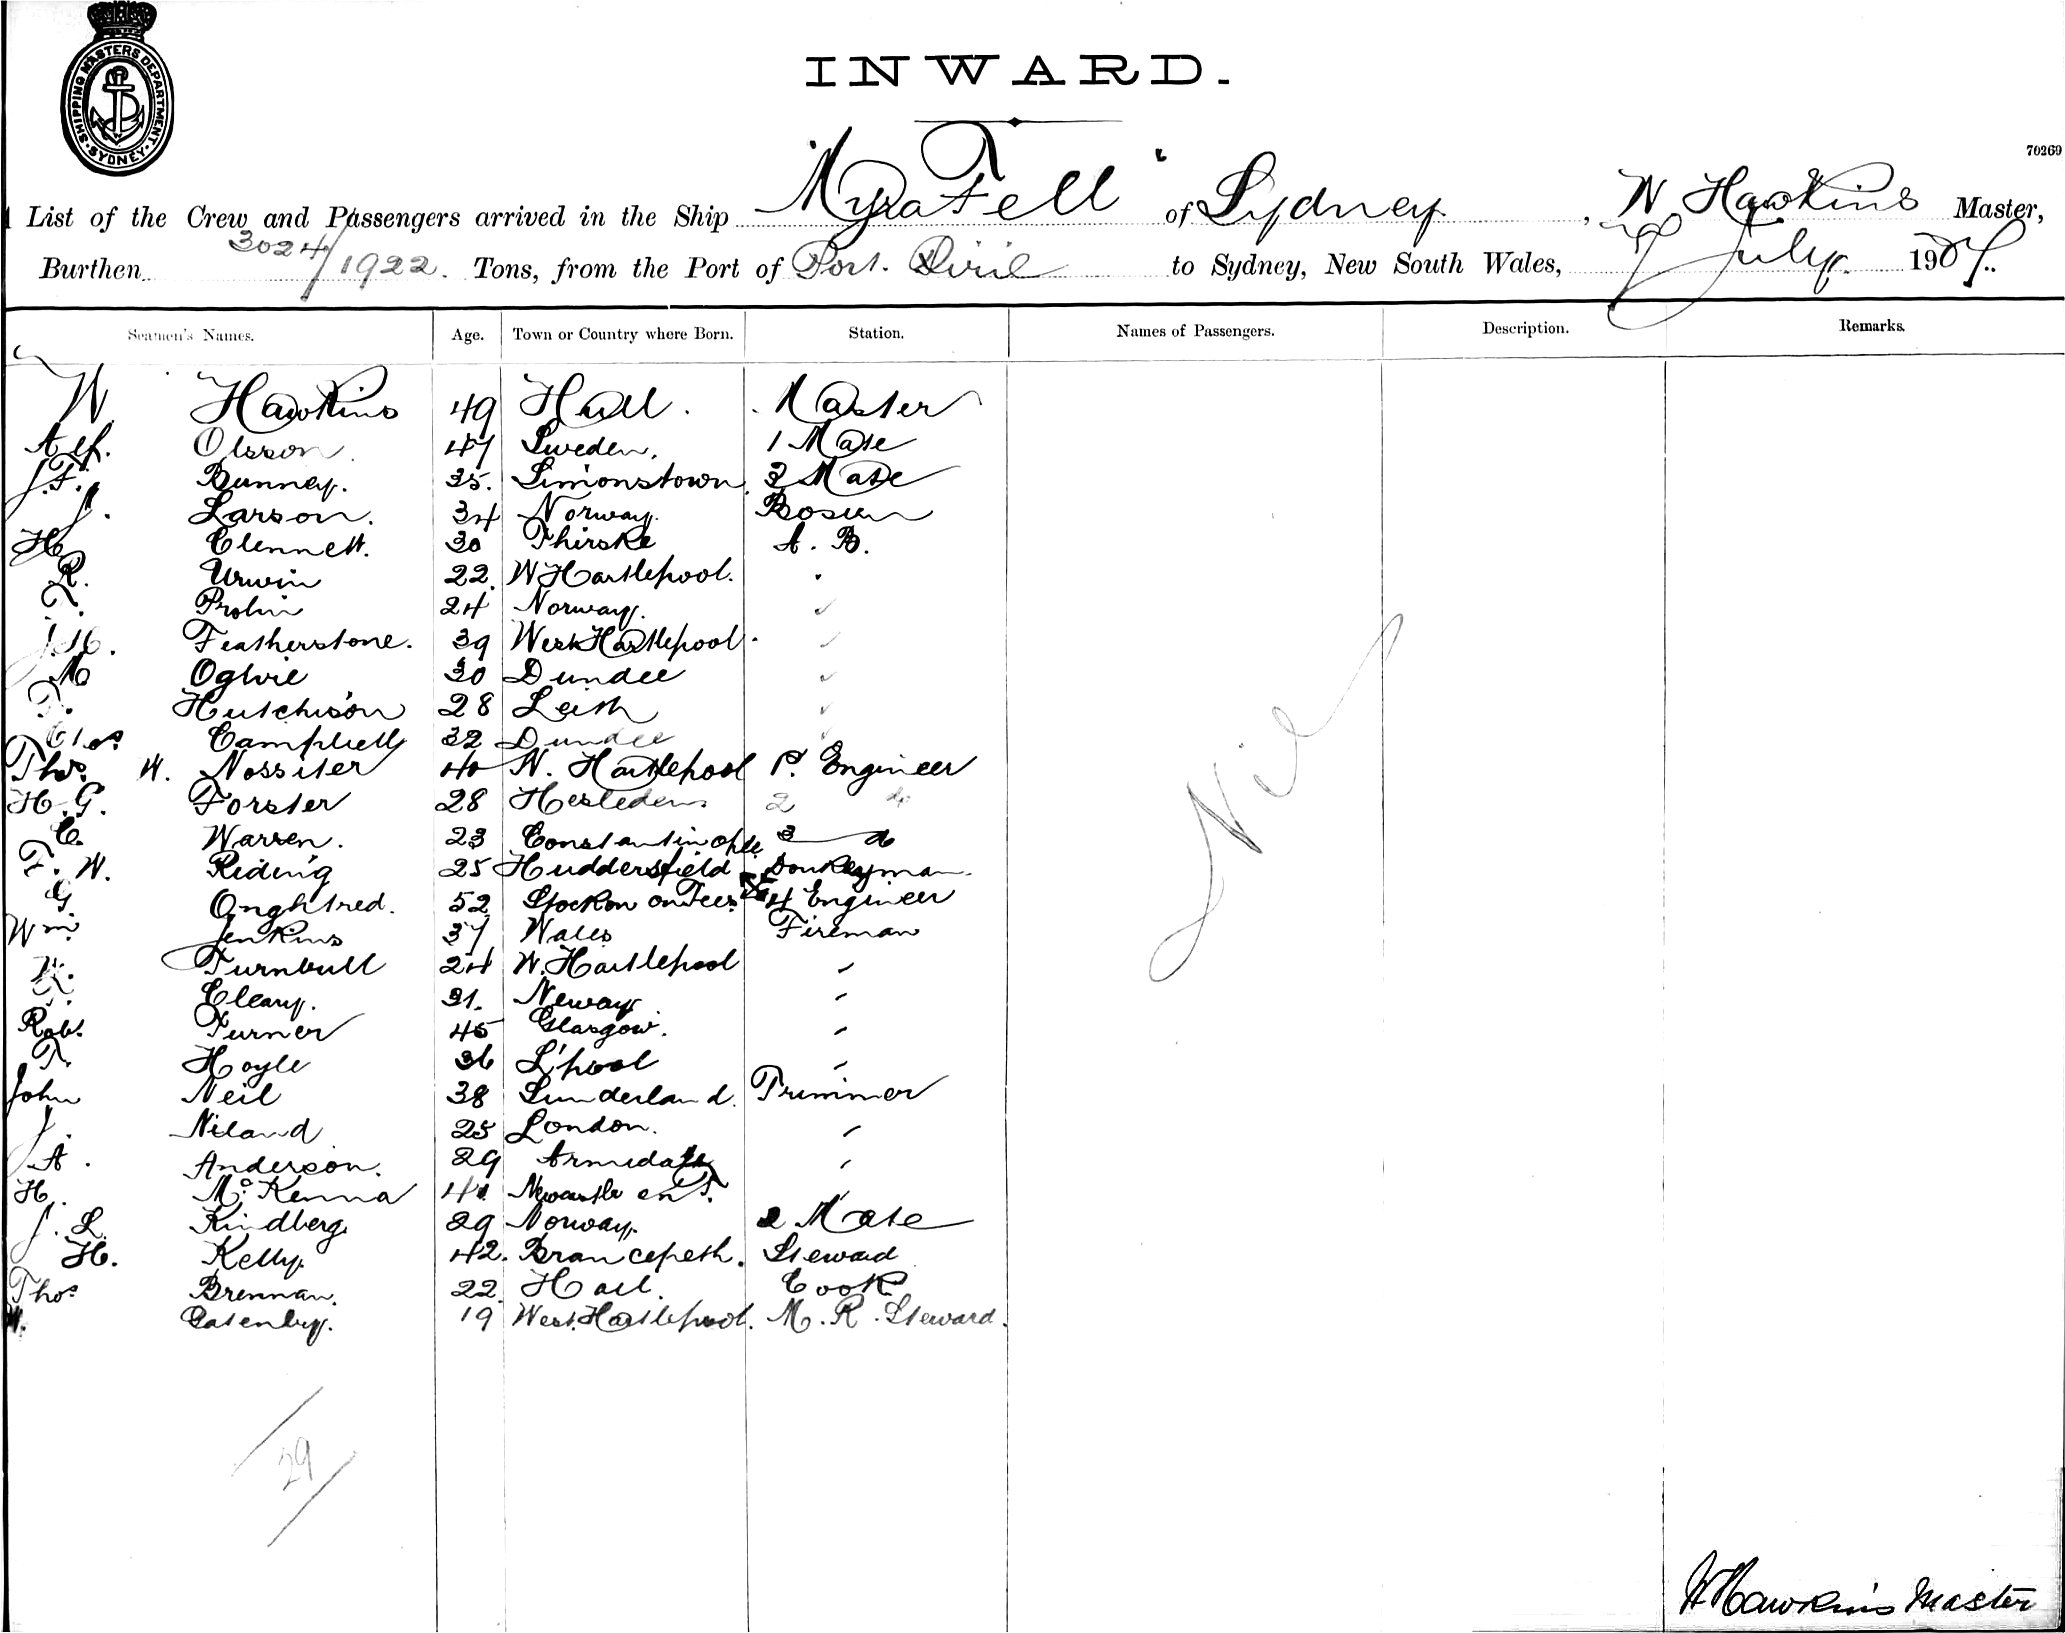 SHIPPING MASTERS DEPARTMENT · SYDNEY ·
INWARD.
70269
List of the Crew and Passengers arrived in the Ship "Myra Fell" of Sydney, W Hawkins Master,
Burthen 3024/1922. Tons, from the Port of Port Pirie to Sydney, New South Wales, 7 July 1907.
Seamen's Names. Age. Town or Country where Born. Station. Names of Passengers. Description. Remarks.
W Hawkins 49 Hull. Master
Alf. Olsson 47 Sweden. 1 Mate
J.F. Bunney. 35. Simonstown 3 Mate
J. Larson. 34 Norway. Bosun
H Clennett. 30 Thirske A. B.
R. Urwin 22. W Hartlepool. "
T. Prolin 24 Norway. "
J.H. Featherstone. 39 West Hartlepool. "
M Ogilvie 30 Dundee "
T. Hutchison 28 Leith "
Chas Campbell 32 Dundee "
Thos. W. Nossiter 40 W. Hartlepool 1st. Engineer
H.G. Forster 28 Hesleden. 2 do
C. Warren. 23 Constantinople 3 do
F. W. Riding 25 Huddersfield Donkeyman.
G Oughtred. 52 Stockon on Tees. 4 Engineer
Wm. Jenkins 37 Wales Fireman
Turnbull 24 W. Hartlepool "
Cleary. 31. "
Robt. Turner 45 Glasgow. "
T. Hoyle 36 L'pool "
John Neil 38 Sunderland. Trimmer
J. Niland 25 London. "
A. Anderson. 29 Armidale "
H. McKenna 41 Newcastle on T. "
J. L. Kindberg 29 Norway. 2 Mate
H. Kelly. 42. Brancepeth. Steward
Thos Brennan. 22. Cook
W. Gatenby. 19 West. Hartlepool. M. R. Steward.
Nil
29
W Hawkins Master